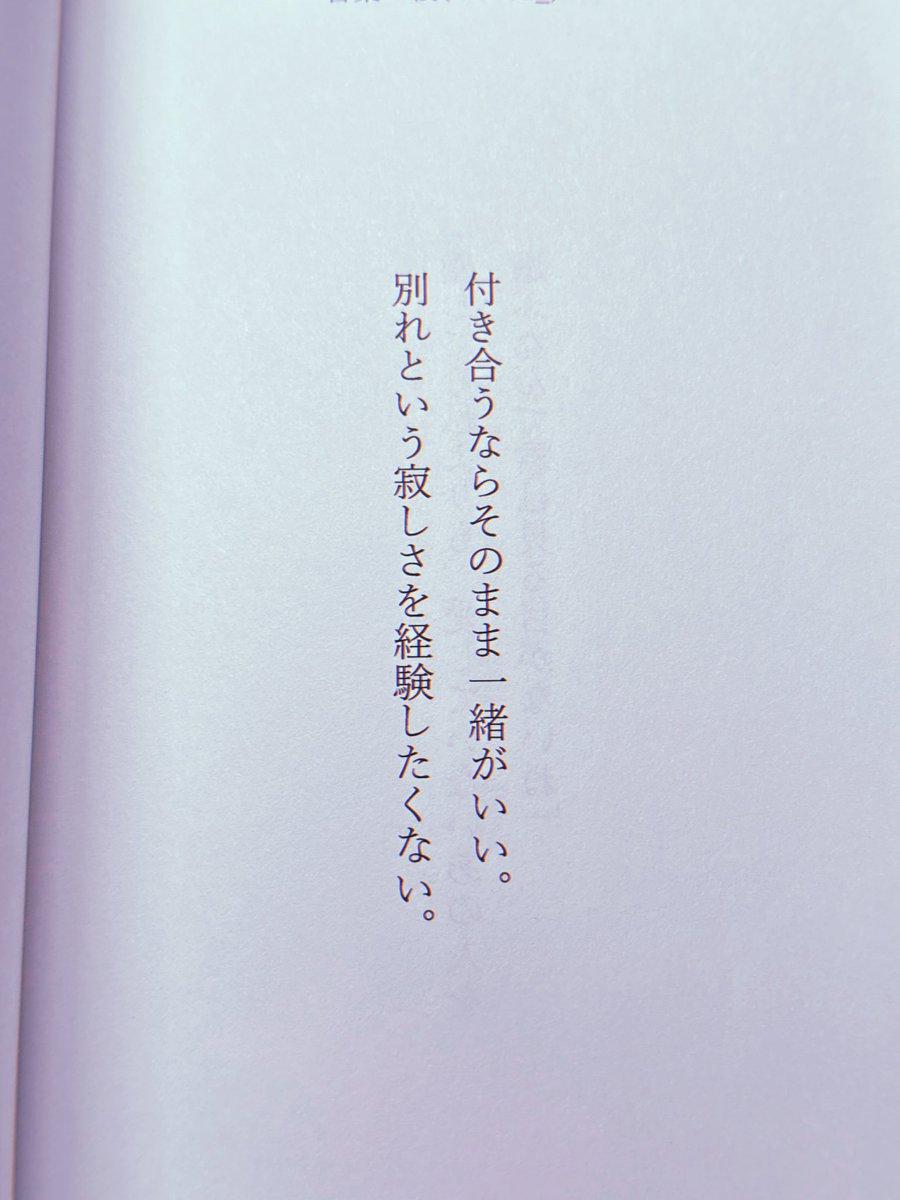 付き合うならそのまま一緒がいい。
別れという寂しさを経験したくない。